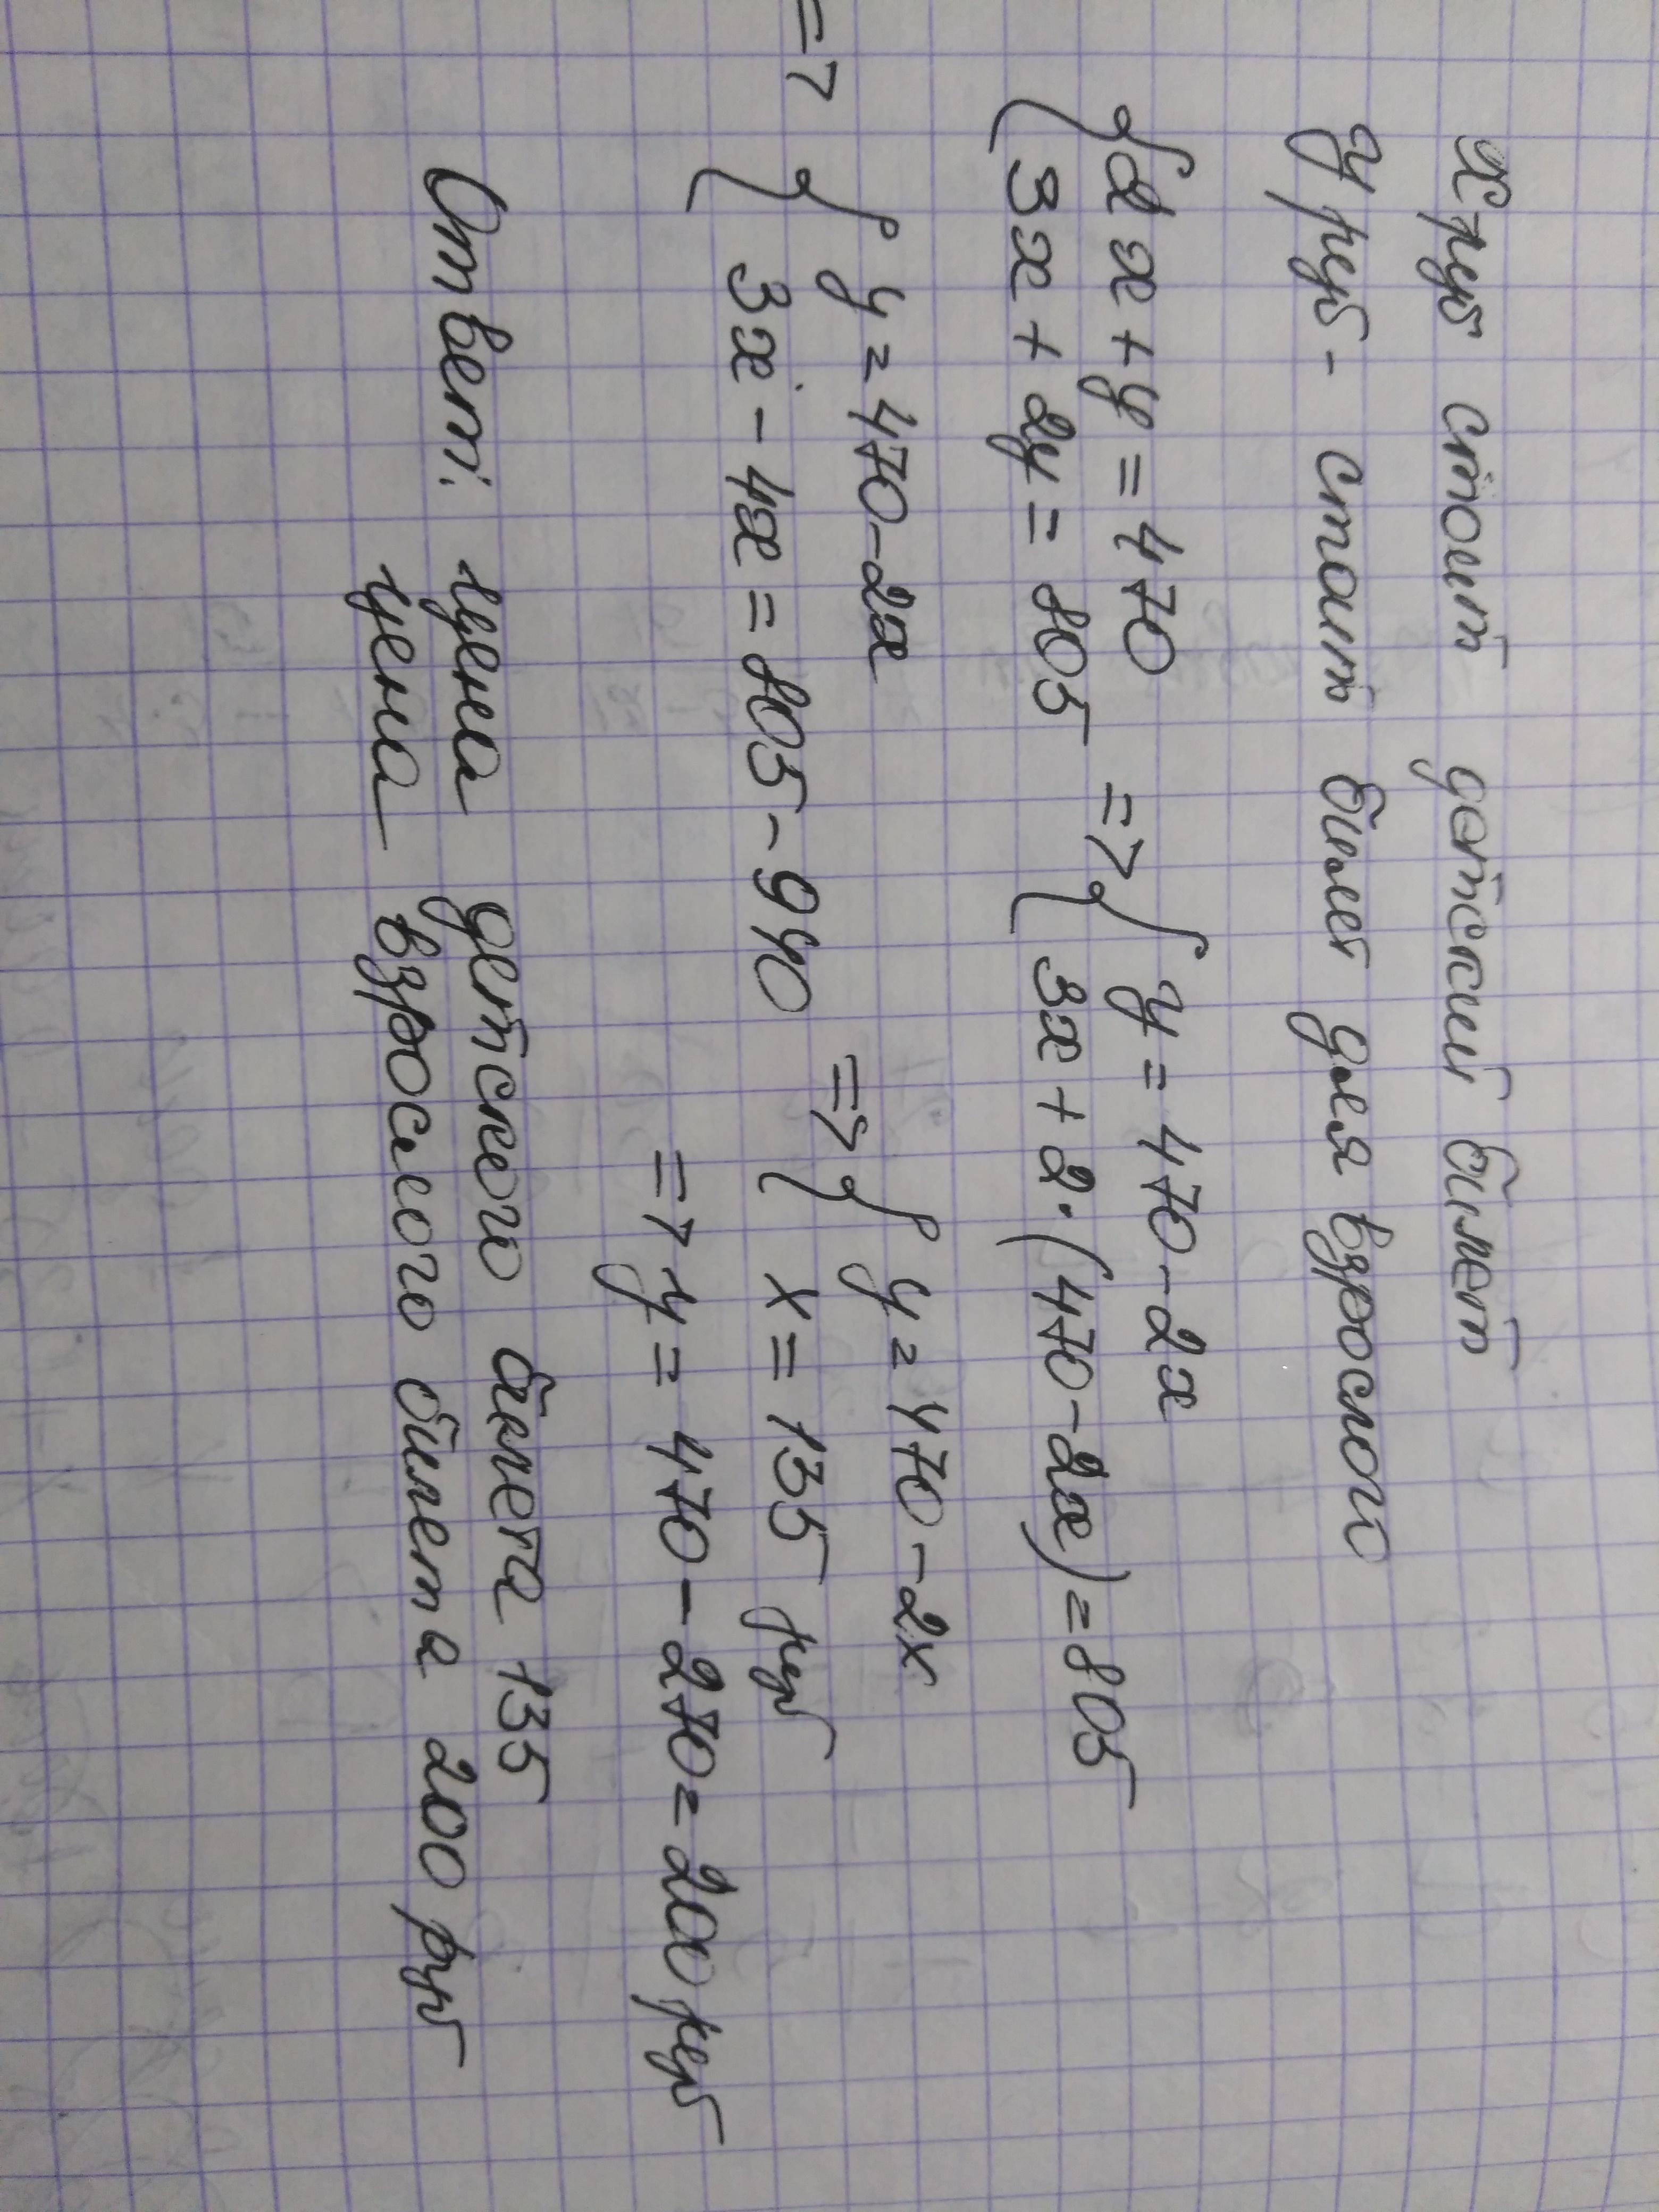 x руб стоит детский билет
y руб - стоит билет для взрослого
{2x + y = 470 => {y = 470 - 2x
{3x + 2y = 805 {3x + 2·(470 - 2x) = 805
=> {y = 470 - 2x => {y = 470 - 2x
{3x - 4x = 805 - 940 {x = 135 руб
=> y = 470 - 270 = 200 руб
Ответ: цена детского билета 135
цена взрослого билета 200 руб